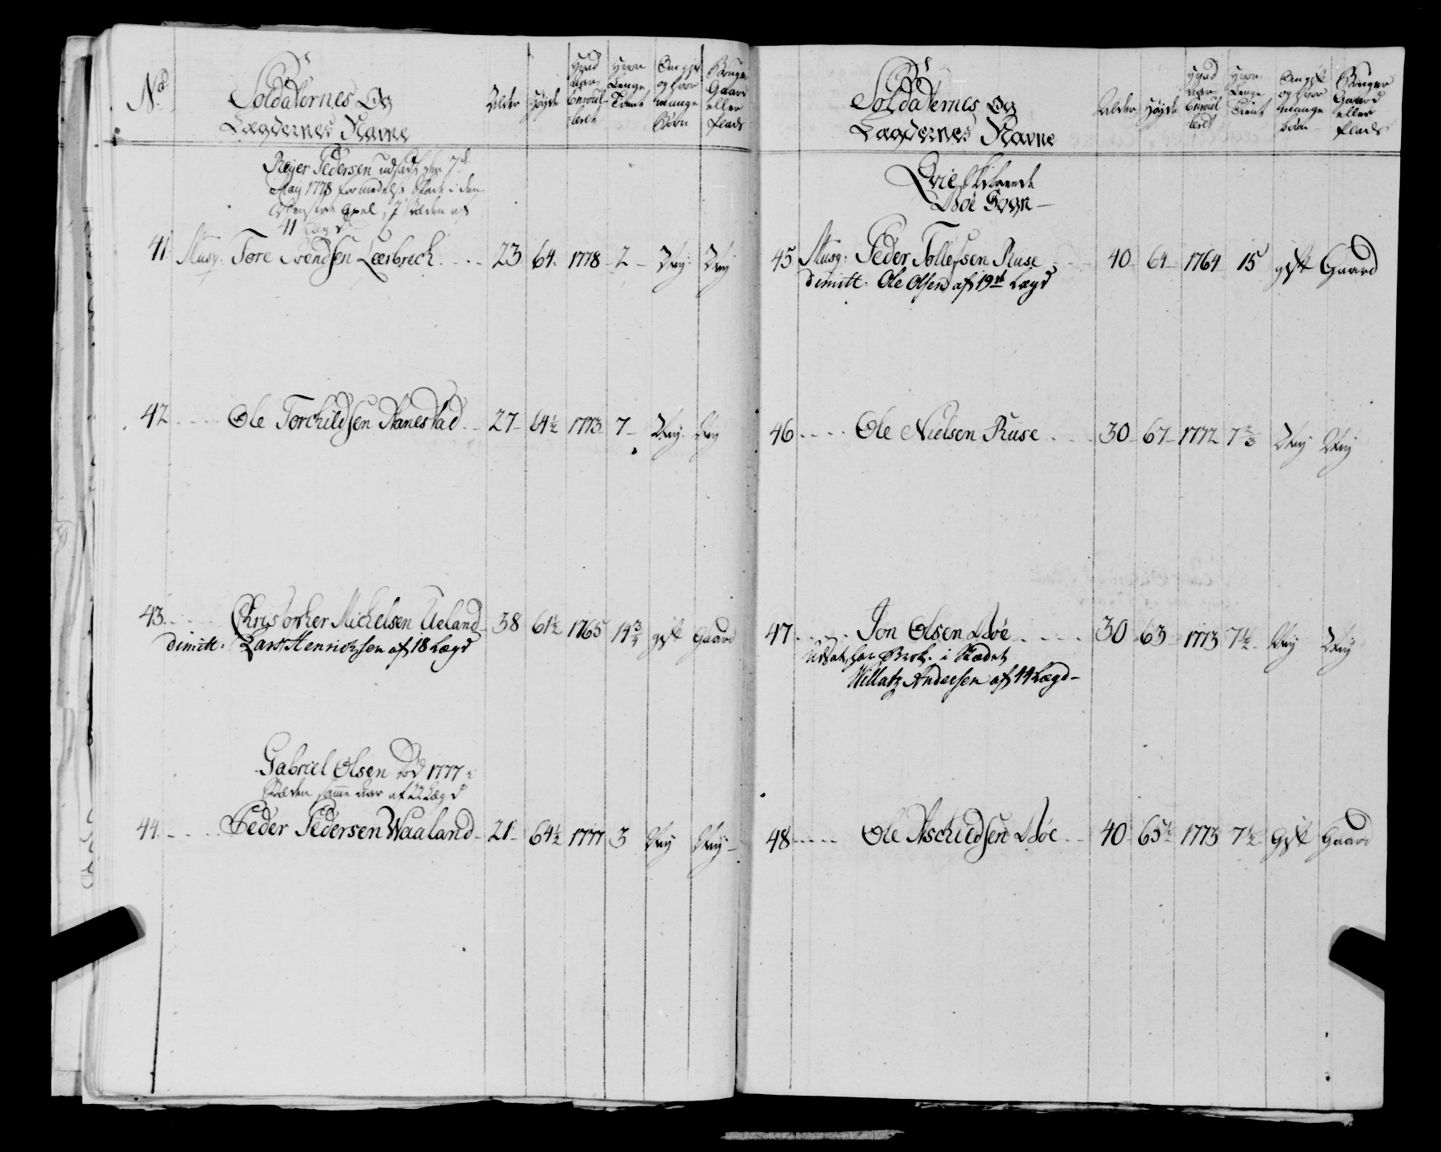 No
Soldaternes Og
Lægdernes Navne
Alder
Høyde
Hvad
Aar
Enroul
leret
Hvor
Lenge
Tient
Om gift
og hvor
mange
Børn
Bruger
Gaard
eller
Plads
Reyer Pedersen udsadt den 7de
May 1778 formedelst Skade i den
Venstre
41 Lægd
41 Musq: Tore Svendsen Leerbreck 23 64 1778 2 Nej Nej
42 Ole Torchildsen Hanestad 27 64½ 1773 7 Nej Nej
43 Christopher Michelsen Ueland 38 61½ 1765 14¾ gift Gaard
dimitt. Lars Henrichsen af 18 Lægd
Gabriel Olsen død 1777
samme Aar af 22 Lægd
44 Peder Pedersen Waaland 21 64½ 1777 3 Nej Nej
Soldaternes Og
Lægdernes Navne
Alder
Høyde
Hvad
Aar
Enroul
leret
Hvor
Lenge
Tient
Om gift
og hvor
mange
Børn
Bruger
Gaard
eller
Plads
Evie
Sogn
45 Musq: Peder Tollefsen Ruse 40 64 1764 15 gift Gaard
dimitt. Ole Olsen af 19de Lægd
46 Ole Nielsen Ruse 30 67 1772 7⅔ Nej Nej
47 Jon Olsen Moe 30 63 1773 7½ Nej Nej
Udsat for Brok. i Stædet
Willatz Andersen af 44 Lægd
48 Ole Aschildsen Moe 40 65½ 1773 7½ gift Gaard